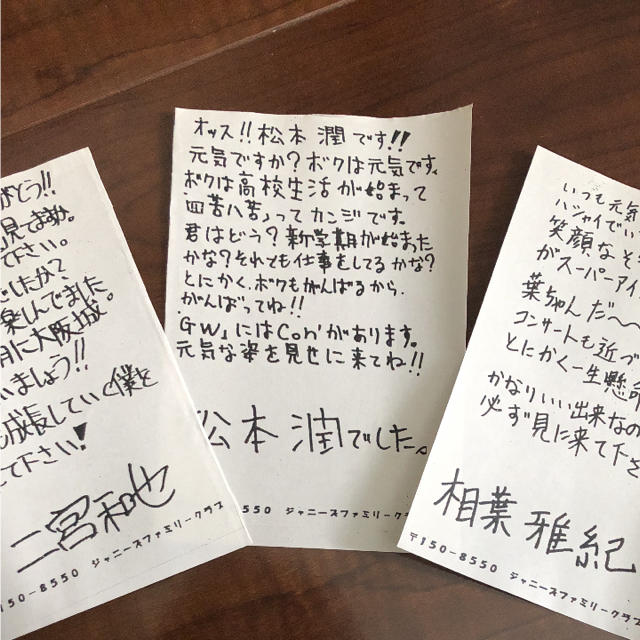 がとう!!
見てますか。
て下さい。
でしたか?
楽しんでました
月に大阪城。
いましょう!!
成長していく僕を
て下さい!
二宮和也
150-8550 ジャニーズファミリークラブ
オッス!!松本 潤です!!
元気ですか?ボクは元気です。
ボクは高校生活が始まって
四苦八苦。ってカンジです。
君はどう?新学期が始まった
かな?それても仕事をしてるかな?
とにかく、ボクもがんばるから、
がんばってね!!
GW。にはCon'があります。
元気な姿を見せに来てね!!
松本 潤でした。
550 ジャニーズファミリークラ
いつも元気
ハシャイでい
笑顔なそ
がスーパーアイ
葉ちゃんだ〜
コンサートも近づ
とにかく一生懸命
かなりいい出来なの
必ず見に来て下さ
相葉 雅紀
〒150-8550 ジャニーズファミリークラブ